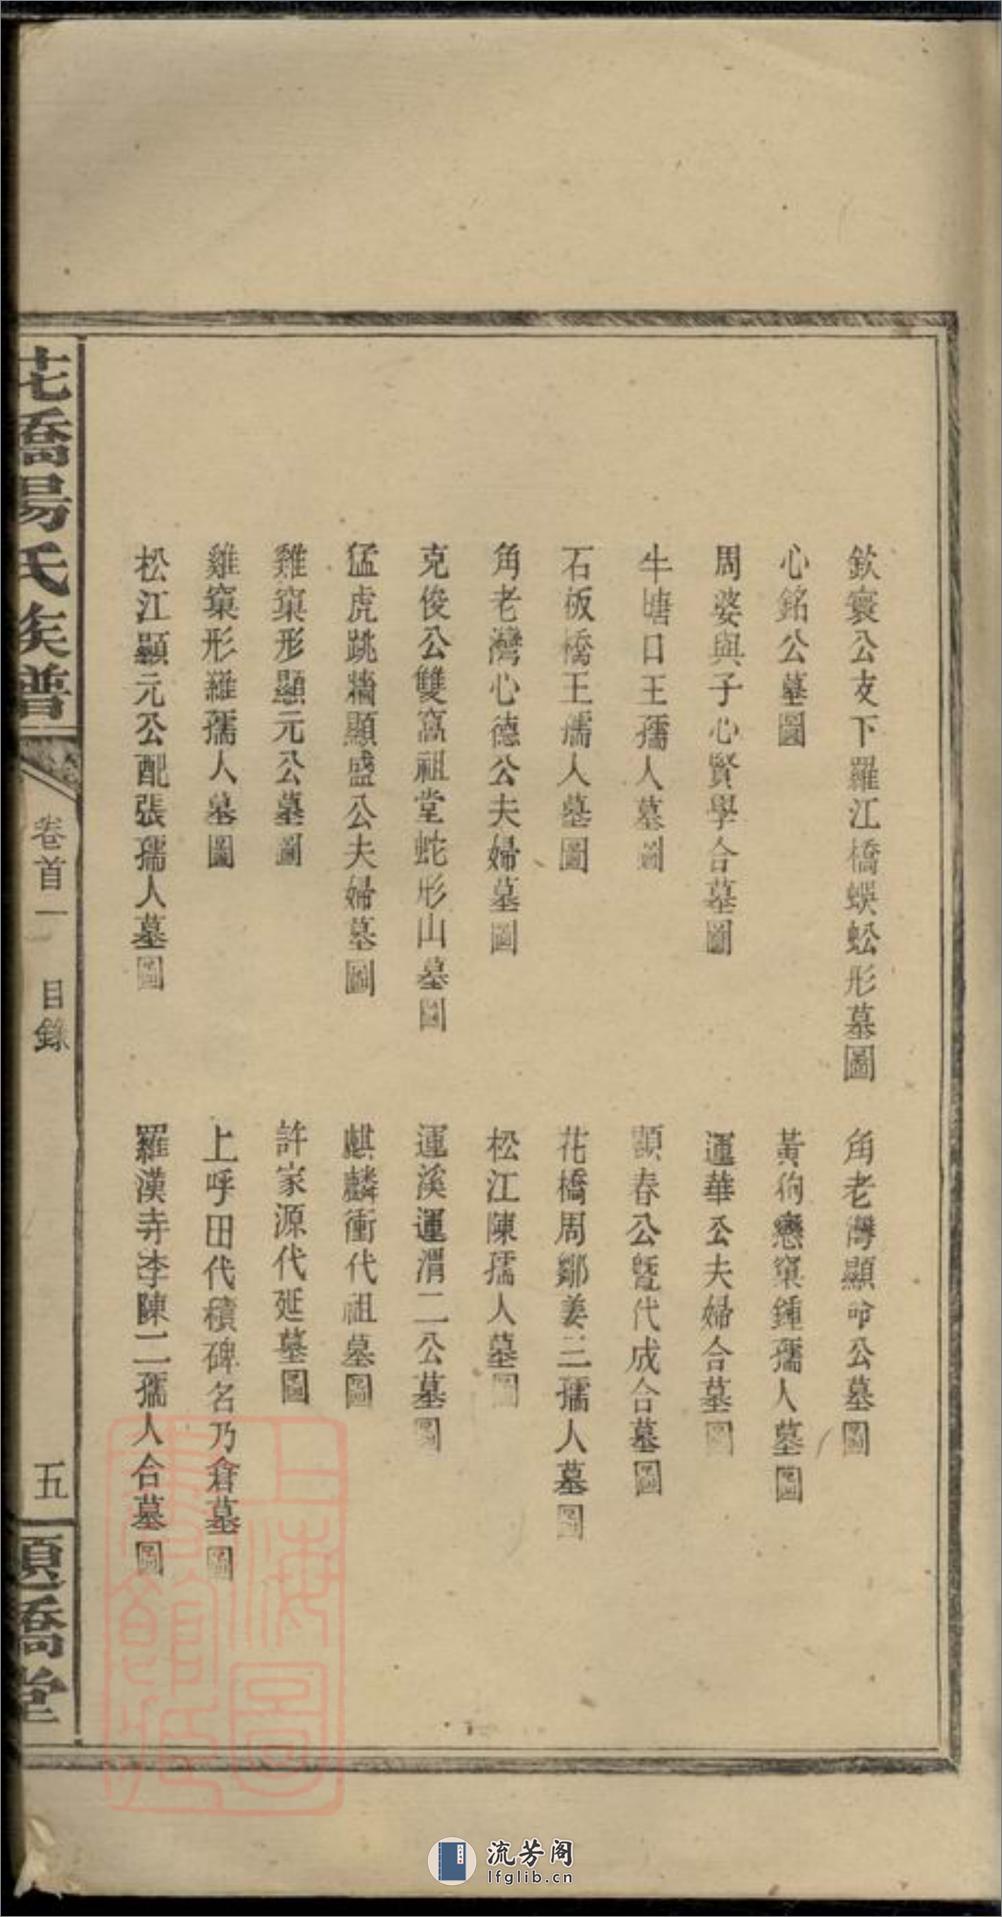 欽寰公支下羅江橋蜈蚣形墓圖
角老灣顯命公墓圖
心銘公墓圖
黃狗戀窠鍾孺人墓圖
周婆與子心賢學合墓圖
運華公夫婦合墓圖
牛塘口王孺人墓圖
顯春公暨代成合墓圖
石板橋王孺人墓圖
花橋周鄒姜三孺人墓圖
角老灣心德公夫婦墓圖
松江陳孺人墓圖
克俊公雙窩祖堂蛇形山墓圖
運溪運渭二公墓圖
猛虎跳牆顯盛公夫婦墓圖
麒麟衝代祖墓圖
雞窠形顯元公墓圖
許家源代延墓圖
雞窠形羅孺人墓圖
上呼田代積碑名乃倉墓圖
松江顯元公配張孺人墓圖
羅漢寺李陳二孺人合墓圖
花橋易氏族譜
卷首一 目錄
五
題橋堂
上海圖書館藏
流芳阁
lfglib.cn